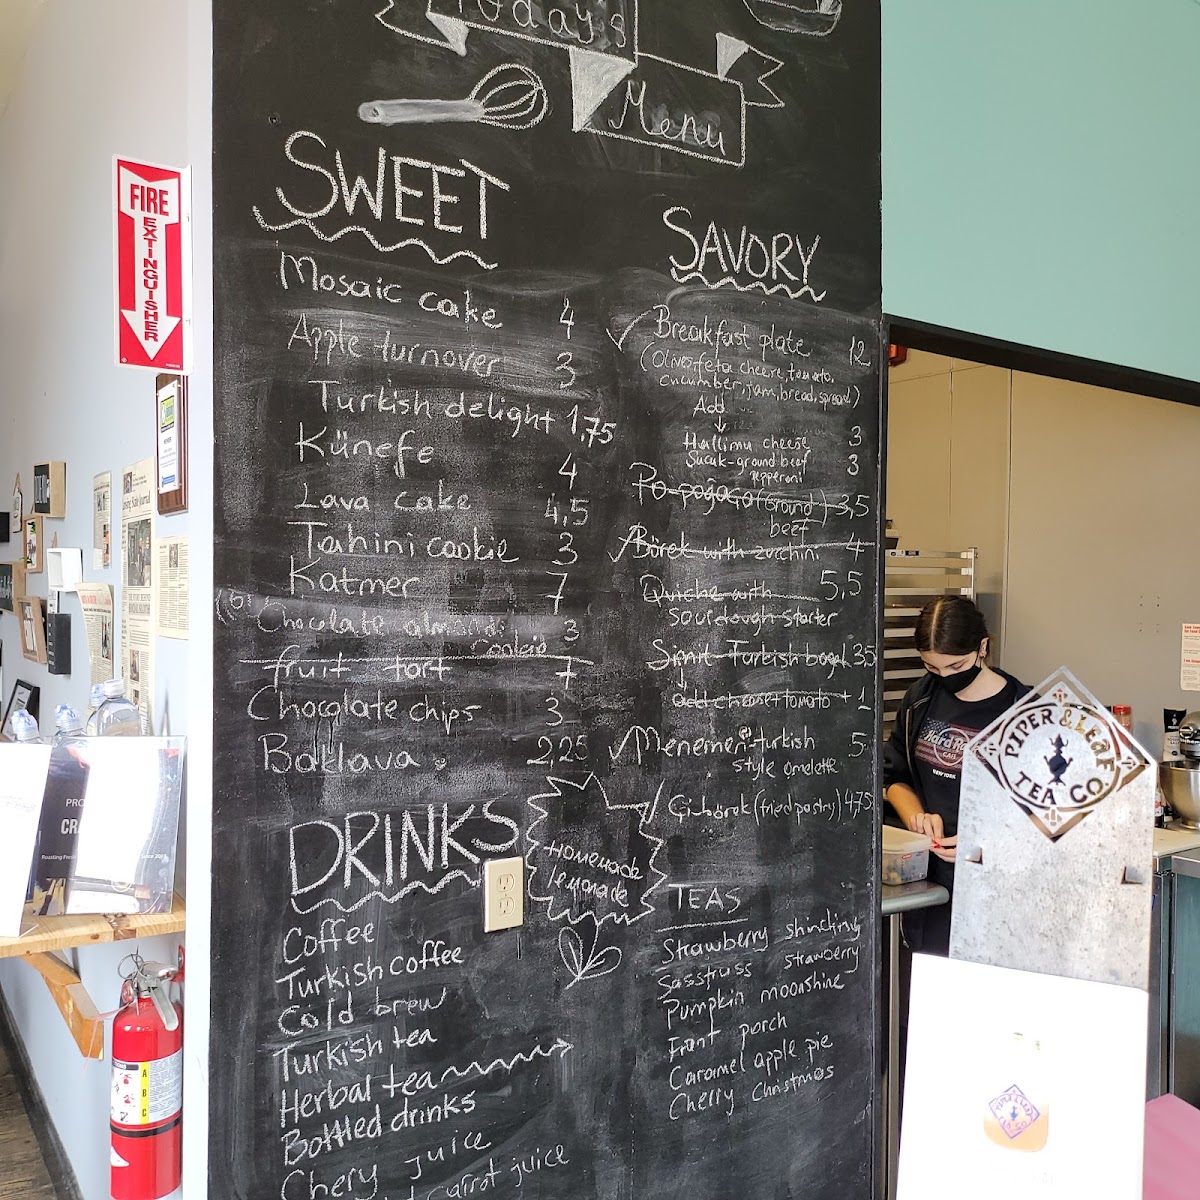 Today's
Menu
FIRE
EXTINGUISHER
SWEET
Mosaic cake 4
Apple turnover 3
Turkish delight 1,75
Künefe 4
Lava cake 4,5
Tahini cookie 3
Katmer 7
Chocolate almond 3
fruit tart 7
Chocolate chips 3
Baklava 2,25
SAVORY
Breakfast plate 12
(Olives, feta cheere, tomato,
cucumber, jam, bread, spread)
Add
Hallimu cheese 3
Sucuk-ground beef 3
pepperoni
Po-poğaca (Ground) 3,5
beef
Börek with zucchini 4
Quiche with 5,5
sourdough starter
Simit-Turkish bagel 3,5
add cheese + tomato + 1
Menemen-turkish 5
style omelette
Çi-börek (fried pastry) 4,75
DRINKS
Homemade
lemonade
Coffee
Turkish coffee
Cold brew
Turkish tea
Herbal tea
Bottled drinks
Chery juice
Carrot juice
TEAS
Strawberry shindling
Sasstruss strawberry
Pumpkin moonshine
Front porch
Caramel apple pie
Cherry Christmas
Hard Rock
CAFE
NEW YORK
PIPER & LEAF
TEA CO.
A
B
C